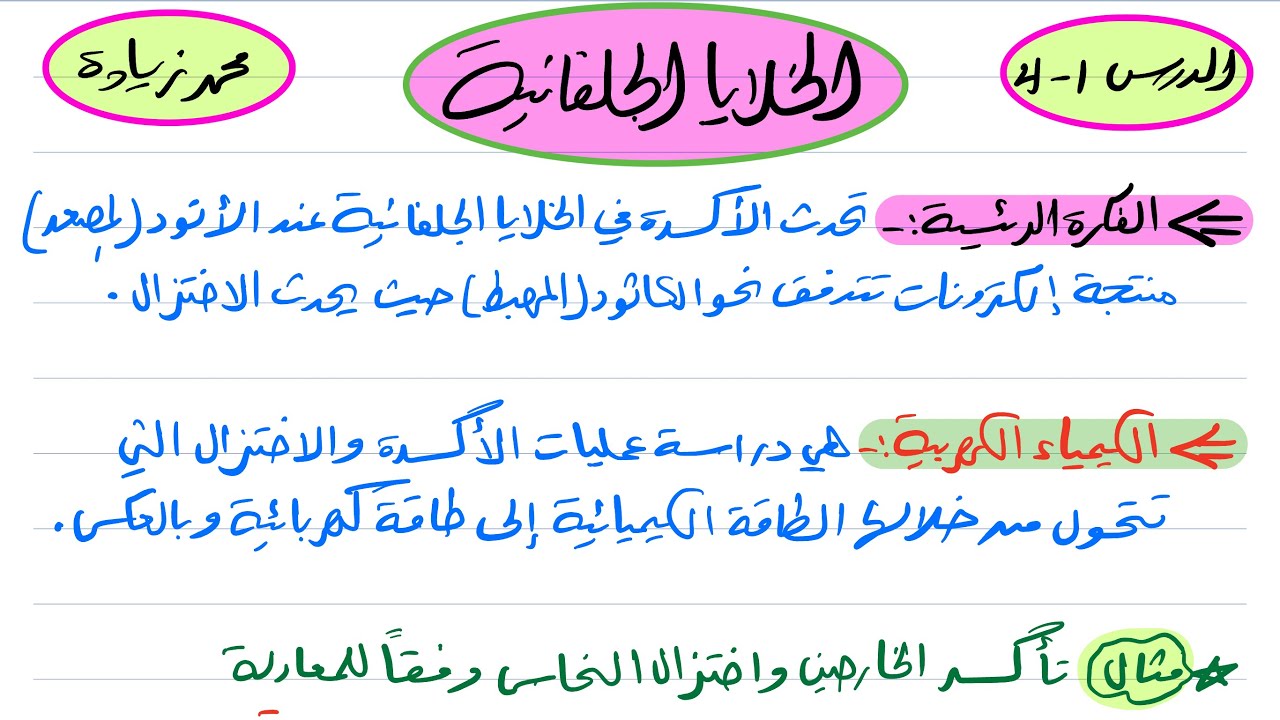 الدرس ١-٤
الخلايا الجلفانية
محمد زيادة
الفكرة الرئسية:- تحدث الأكسدة في الخلايا الجلفانية عند الأنود (المصعد)
منتجة إلكترونات تتدفق نحو الكاثود (المهبط) حيث يحدث الاختزال.
الكيمياء الكهربية:- هي دراسة عمليات الأكسدة والاختزال التي
تتحول من خلالها الطاقة الكيميائية إلى طاقة كهربائية وبالعكس.
مثال تأكسد الخارصين واختزال النحاس وفقاً للمعادلة